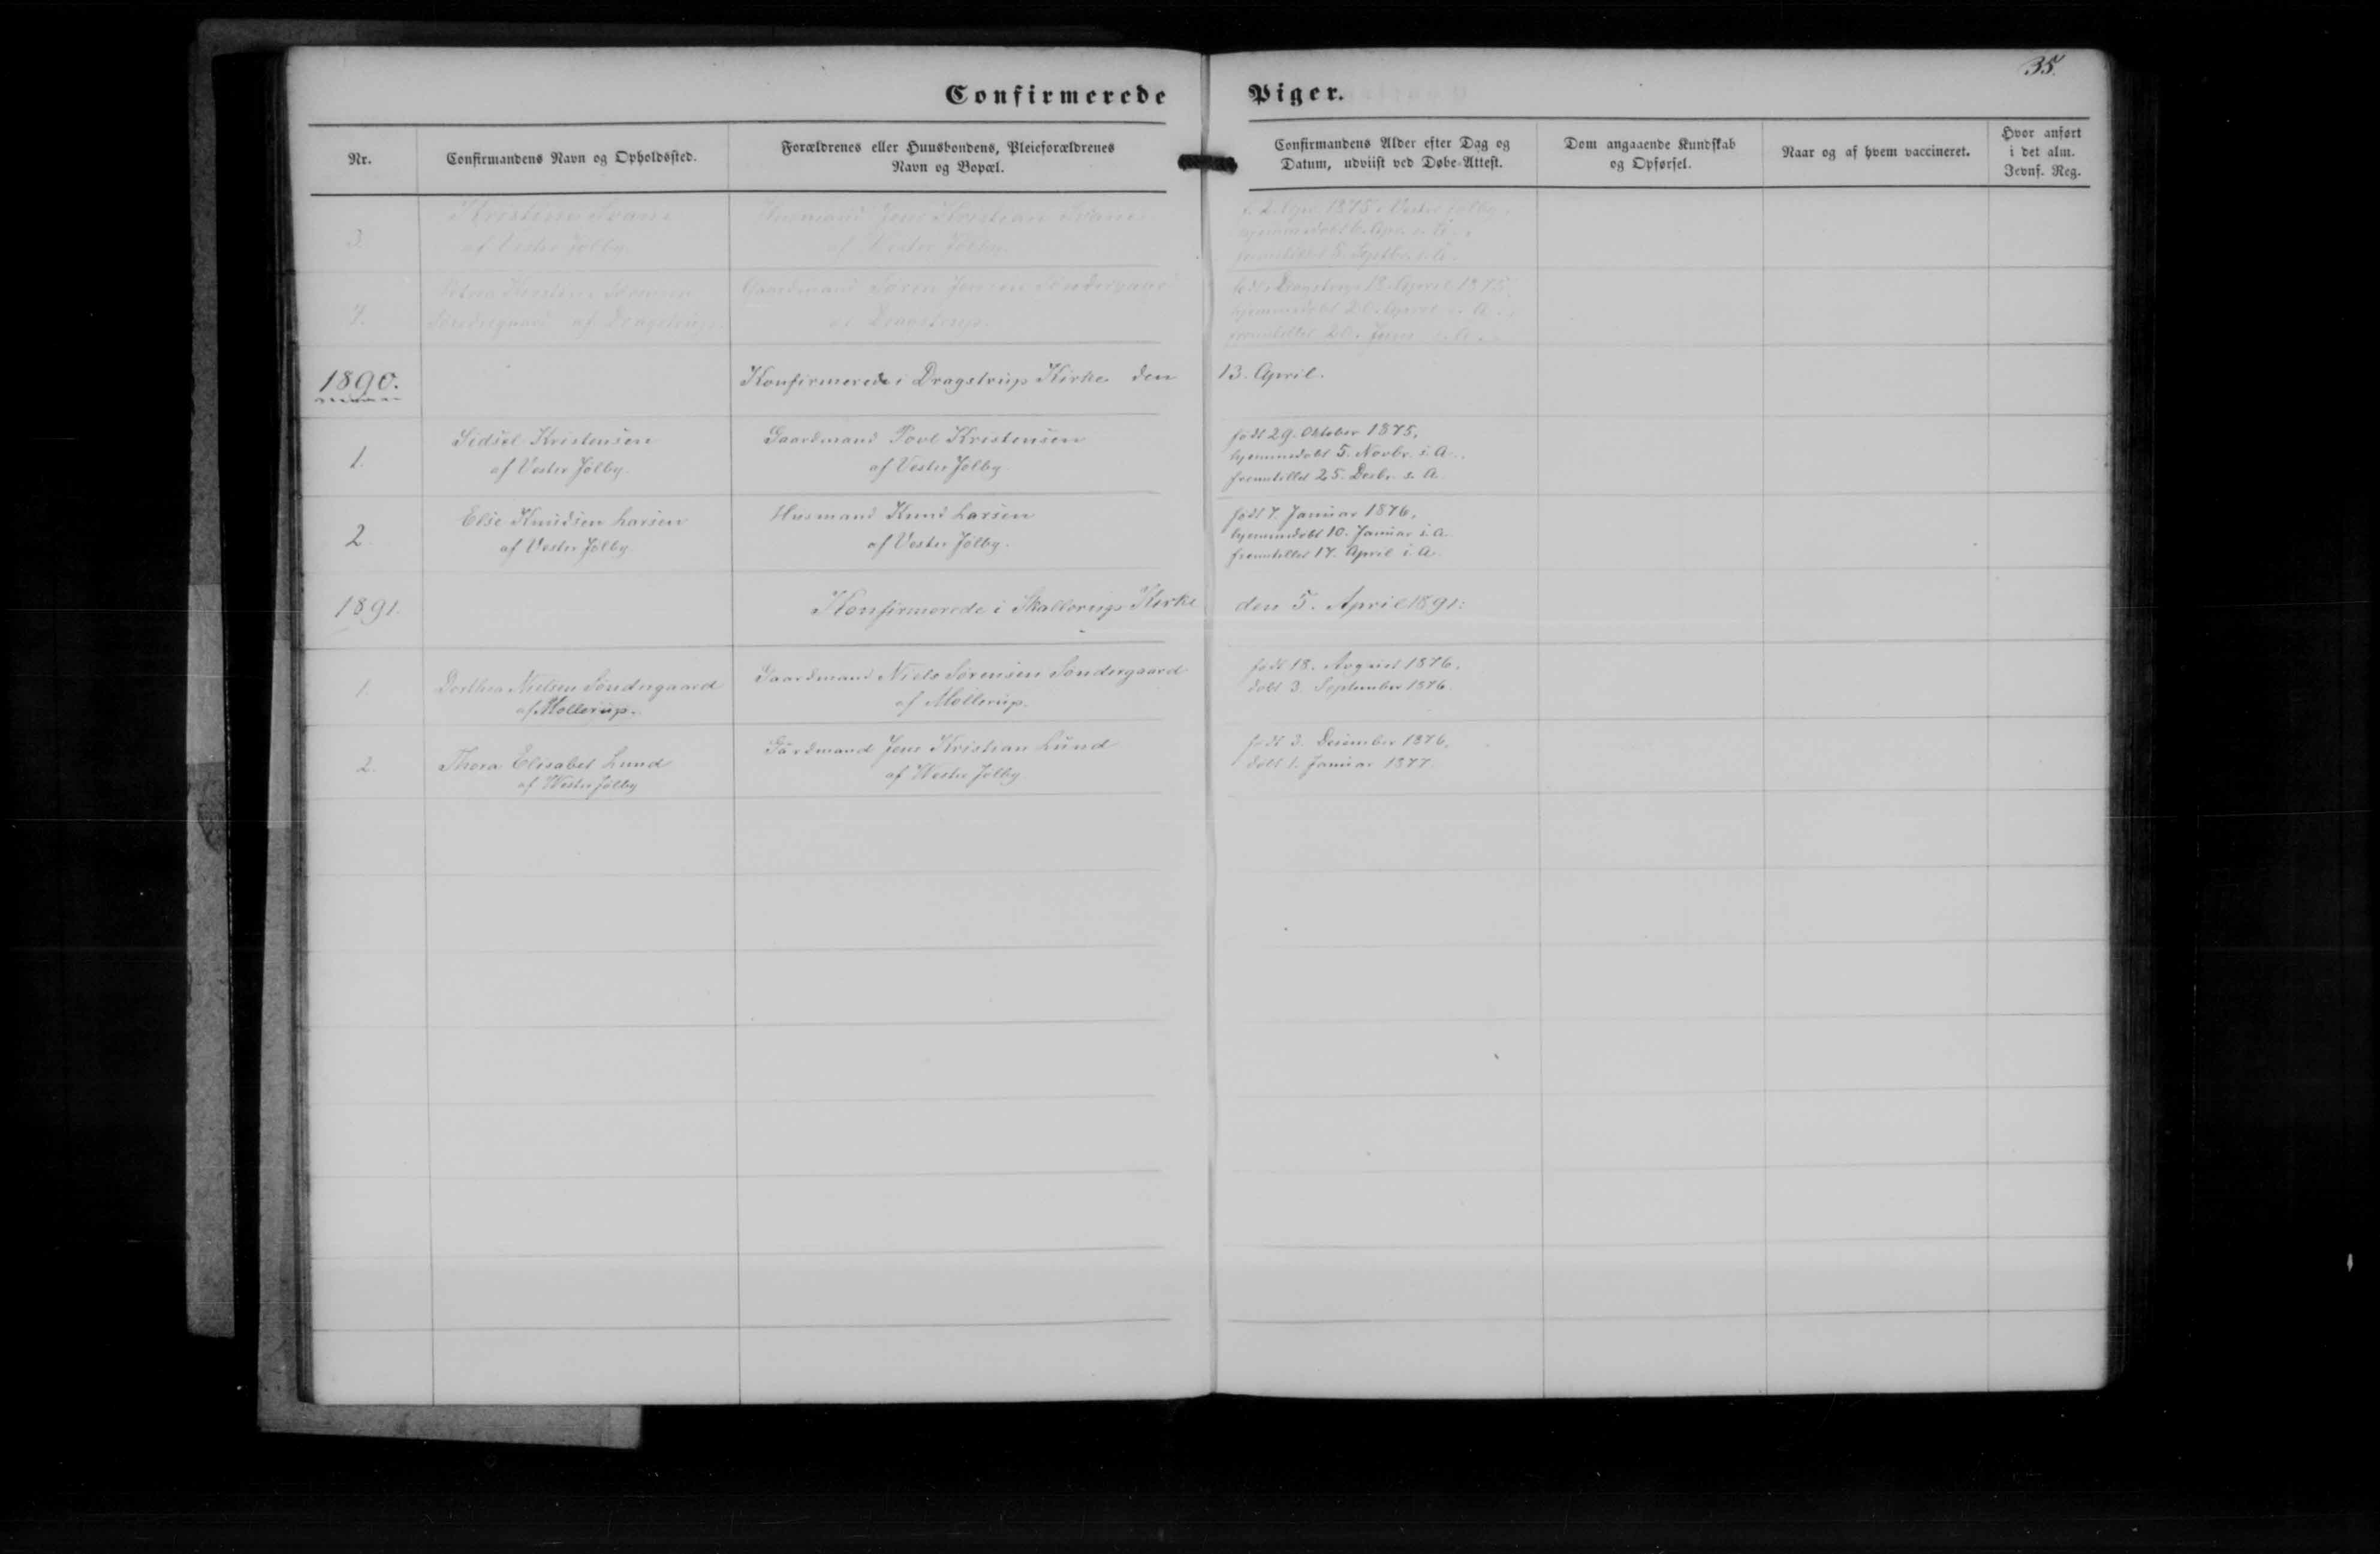 35.
Confirmerede Piger.
Nr.
Confirmandens Navn og Opholdssted.
Forældrenes eller Huusbondens, Pleieforældrenes
Navn og Bopæl.
Confirmandens Alder efter Dag og
Datum, udviist ved Døbe-Attest.
Dom angaaende Kundskab
og Opførsel.
Naar og af hvem vaccineret.
Hvor anført
i det alm.
Jevnf. Reg.
3.
Kristine
af Vester Jølby.
Husmand Jens Kristian
af Vester Jølby.
1875 Vester Jølby,
4.
Søndergaard af Dragstrup.
Gaardmand Søren Jensen Søndergaard
af Dragstrup.
født i Dragstrup 18. April 1875,
hjemmedøbt 20. April s. A.,
fremstillet 20. Juni s. A.
1890.
Konfirmerede i Dragstrup Kirke den 13. April.
1.
Sidsel Kristensen
af Vester Jølby.
Gaardmand Povl Kristensen
af Vester Jølby.
født 29. Oktober 1875,
hjemmedøbt 5. Novbr. s. A.,
fremstillet 25. Decbr. s. A.
2.
Else Knudsen Larsen
af Vester Jølby.
Husmand Knud Larsen
af Vester Jølby.
født 7. Januar 1876,
hjemmedøbt 10. Januar s. A.
fremstillet 17. April s. A.
1891.
Konfirmerede i Skallerup Kirke den 5. April 1891:
1.
Dorthea Nielsen Søndergaard
af Møllerup.
Gaardmand Niels Sørensen Søndergaard
af Møllerup.
født 18. August 1876,
døbt 3. September 1876.
2.
Thora Elisabet Lund
af Vester Jølby
Gårdmand Jens Kristian Lund
af Vester Jølby
født 3. December 1876,
døbt 1. Januar 1877.